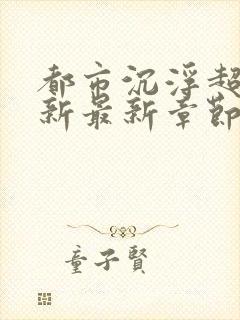 都市沉浮超
新最新章節
童子賢